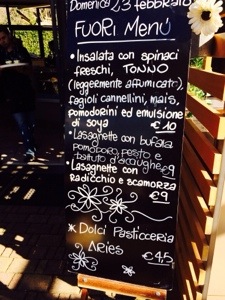 Domenica 23 febbraio
FUORI MENÚ
• Insalata con spinaci
freschi, TONNO
(leggermente affumicato),
fagioli cannellini, mais,
pomodorini ed emulsione
di soya €10
• Lasagnette con bufala
pomodoro, pesto e
battuto d'acciughe €9
• Lasagnette con
radicchio e scamorza
€9
* Dolci Pasticceria
ARIES
€4,5